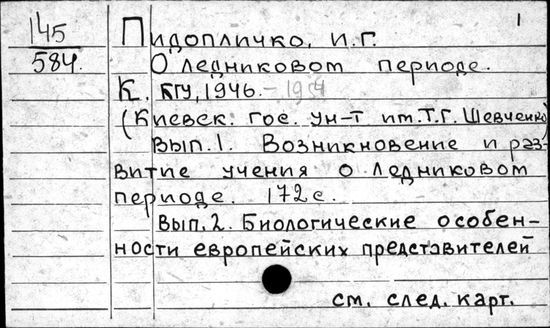 1
145
584.
Пидопличко, И.Г.
О ледниковом периоде.
К. КГУ, 1946. – 1954
(Киевск. гос. ун-т им. Т.Г. Шевченко)
Вып. 1. Возникновение и раз-
витие учения о ледниковом
периоде. 172 с.
Вып. 2. Биологические особен-
ности европейских представителей
см. след. карт.